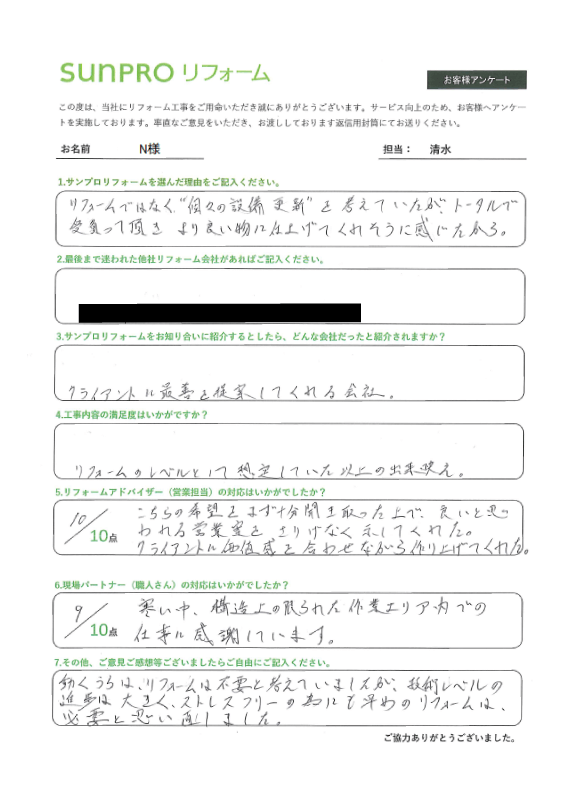 SUNPRO リフォーム
お客様アンケート
この度は、当社にリフォーム工事をご用命いただき誠にありがとうございます。サービス向上のため、お客様へアンケー
トを実施しております。率直なご意見をいただき、お渡ししております返信用封筒にてお送りください。
お名前 N様 担当： 清水
1.サンプロリフォームを選んだ理由をご記入ください。
リフォームではなく、"個々の設備更新"を考えていたが、トータルで
受負って頂き より良い物に仕上げてくれそうに感じたから。
2.最後まで迷われた他社リフォーム会社があればご記入ください。
3.サンプロリフォームをお知り合いに紹介するとしたら、どんな会社だったと紹介されますか？
クライアントに最善を提案してくれる会社。
4.工事内容の満足度はいかがですか？
リフォームのレベルとして想定していた以上の出来映え。
5.リフォームアドバイザー（営業担当）の対応はいかがでしたか？
10/10点
こちらの希望をまず十分聞き取った上で、良いと思
われる営業案をさりげなく示してくれた。
クライアントに価値感を合わせながら作り上げてくれた。
6.現場パートナー（職人さん）の対応はいかがでしたか？
9/10点
寒い中、構造上の限られた作業エリア内での
仕事に感謝しています。
7.その他、ご意見ご感想等ございましたらご自由にご記入ください。
動くうちは、リフォームは不要と考えていましたが、技術レベルの
進歩は大きく、ストレスフリーの為にも早めのリフォームは、
必要と思い直しました。
ご協力ありがとうございました。